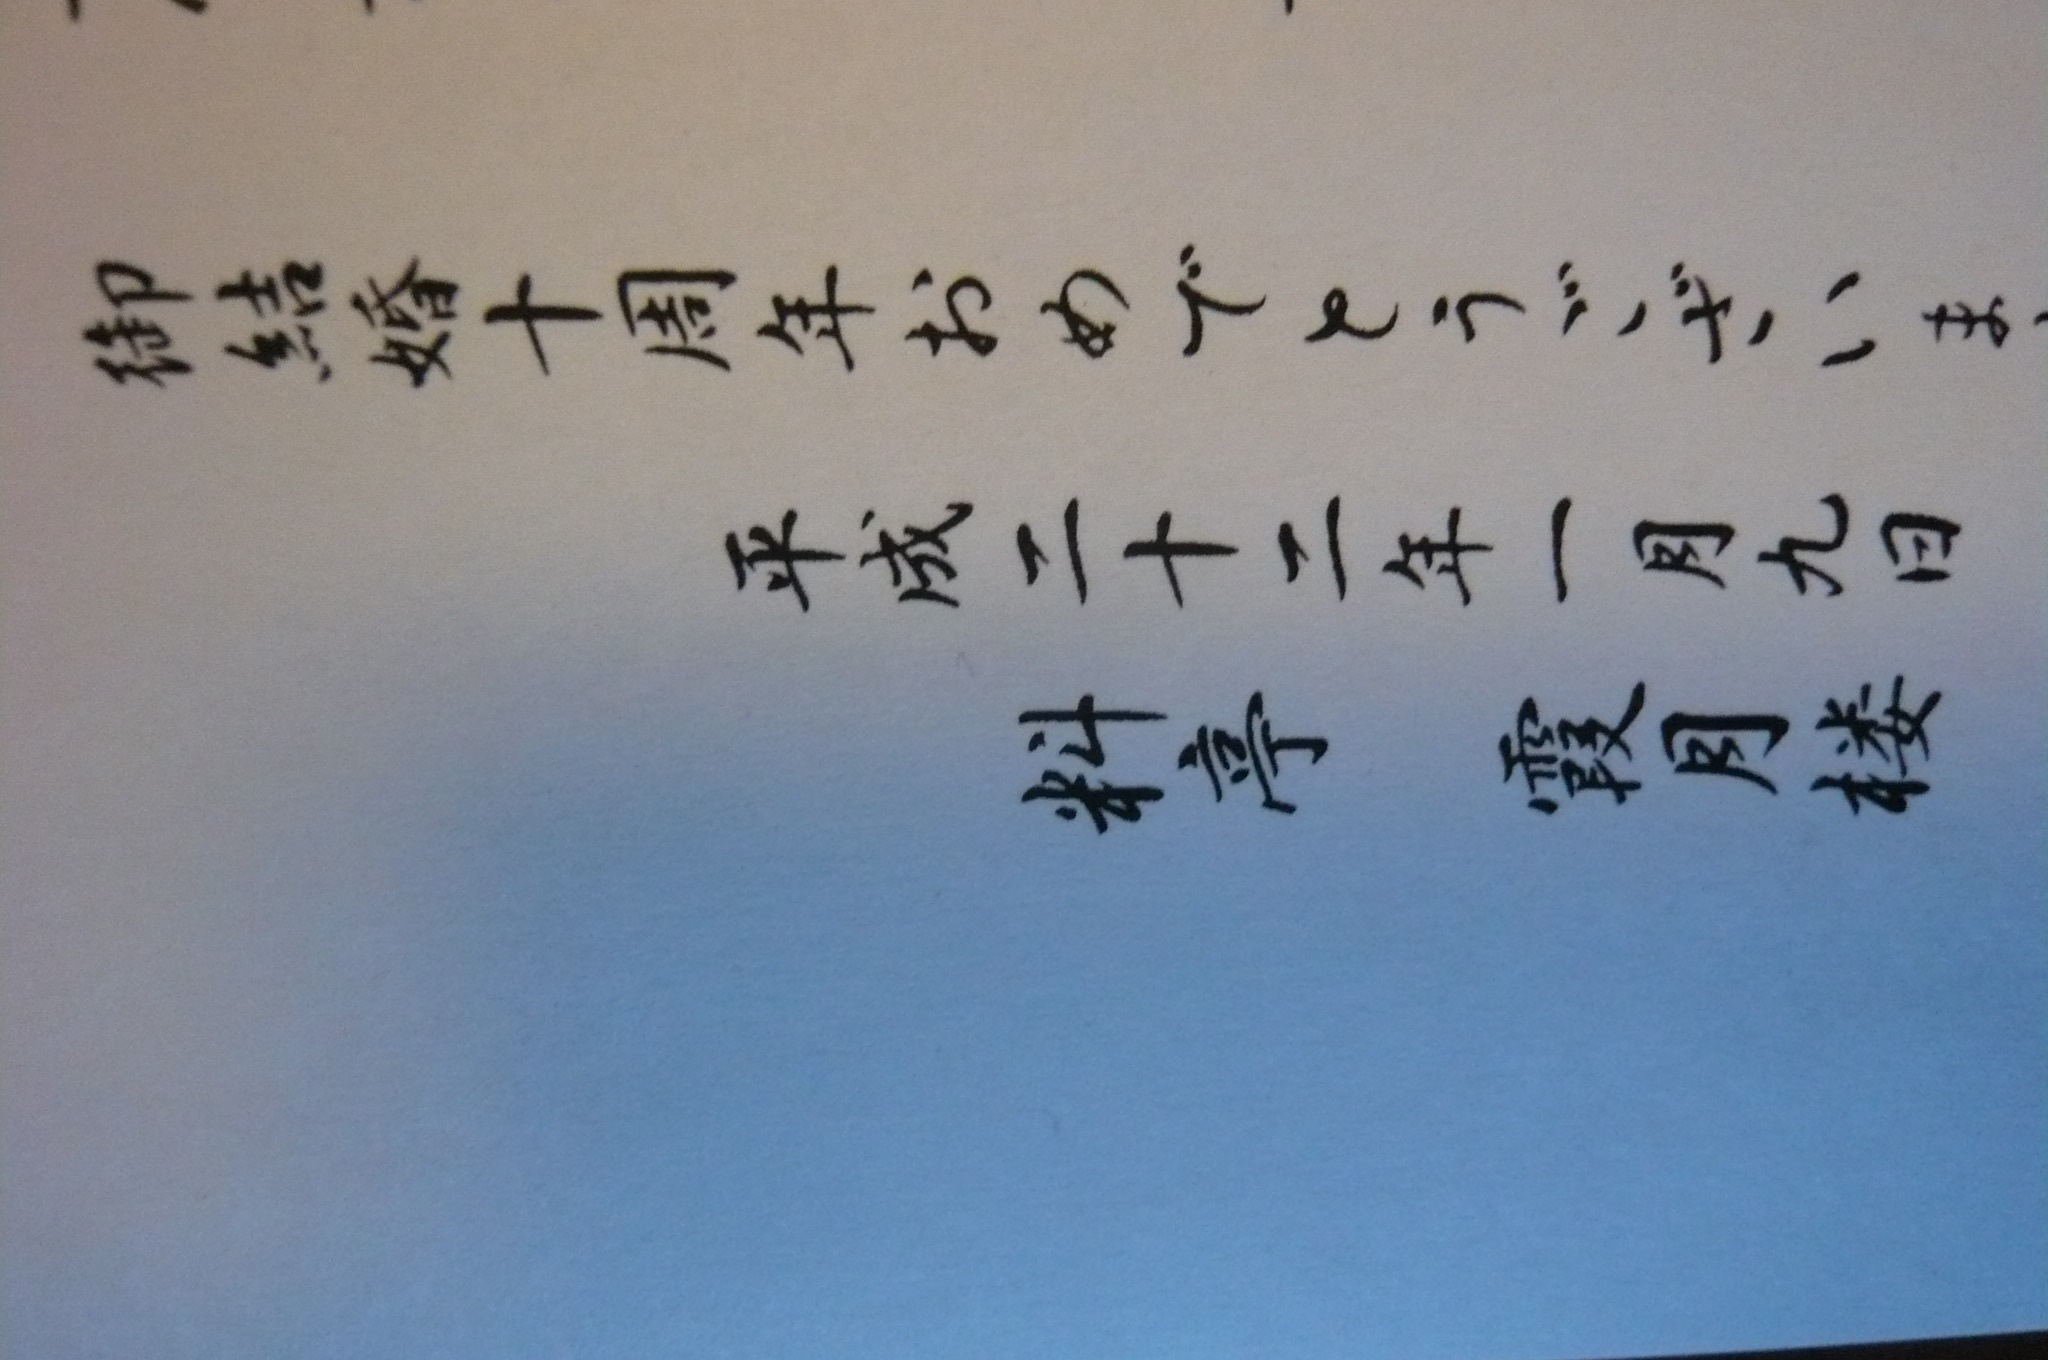 御結婚十周年おめでとうございま
平成二十二年一月九日
料亭 霞月楼